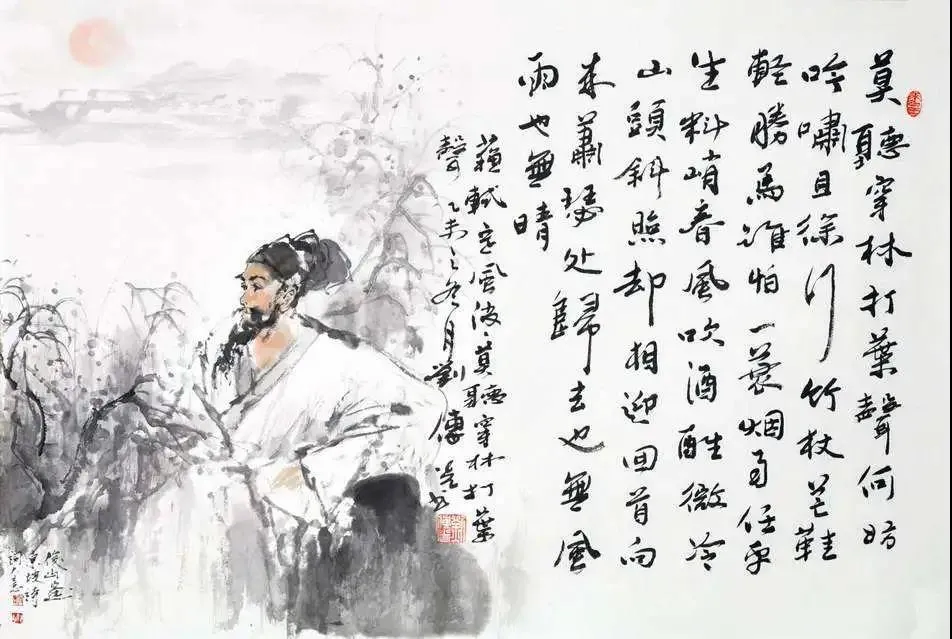 莫聽穿林打葉聲何妨
吟嘯且徐行竹杖芒鞋
輕勝馬誰怕一蓑烟雨任平
生料峭春風吹酒醒微冷
山頭斜照却相迎回首向
来蕭瑟处歸去也無風
雨也無晴
蘇軾定風波、莫聽穿林打葉
聲乙未之冬月劉傳
俊山畫
東坡詩
詞意